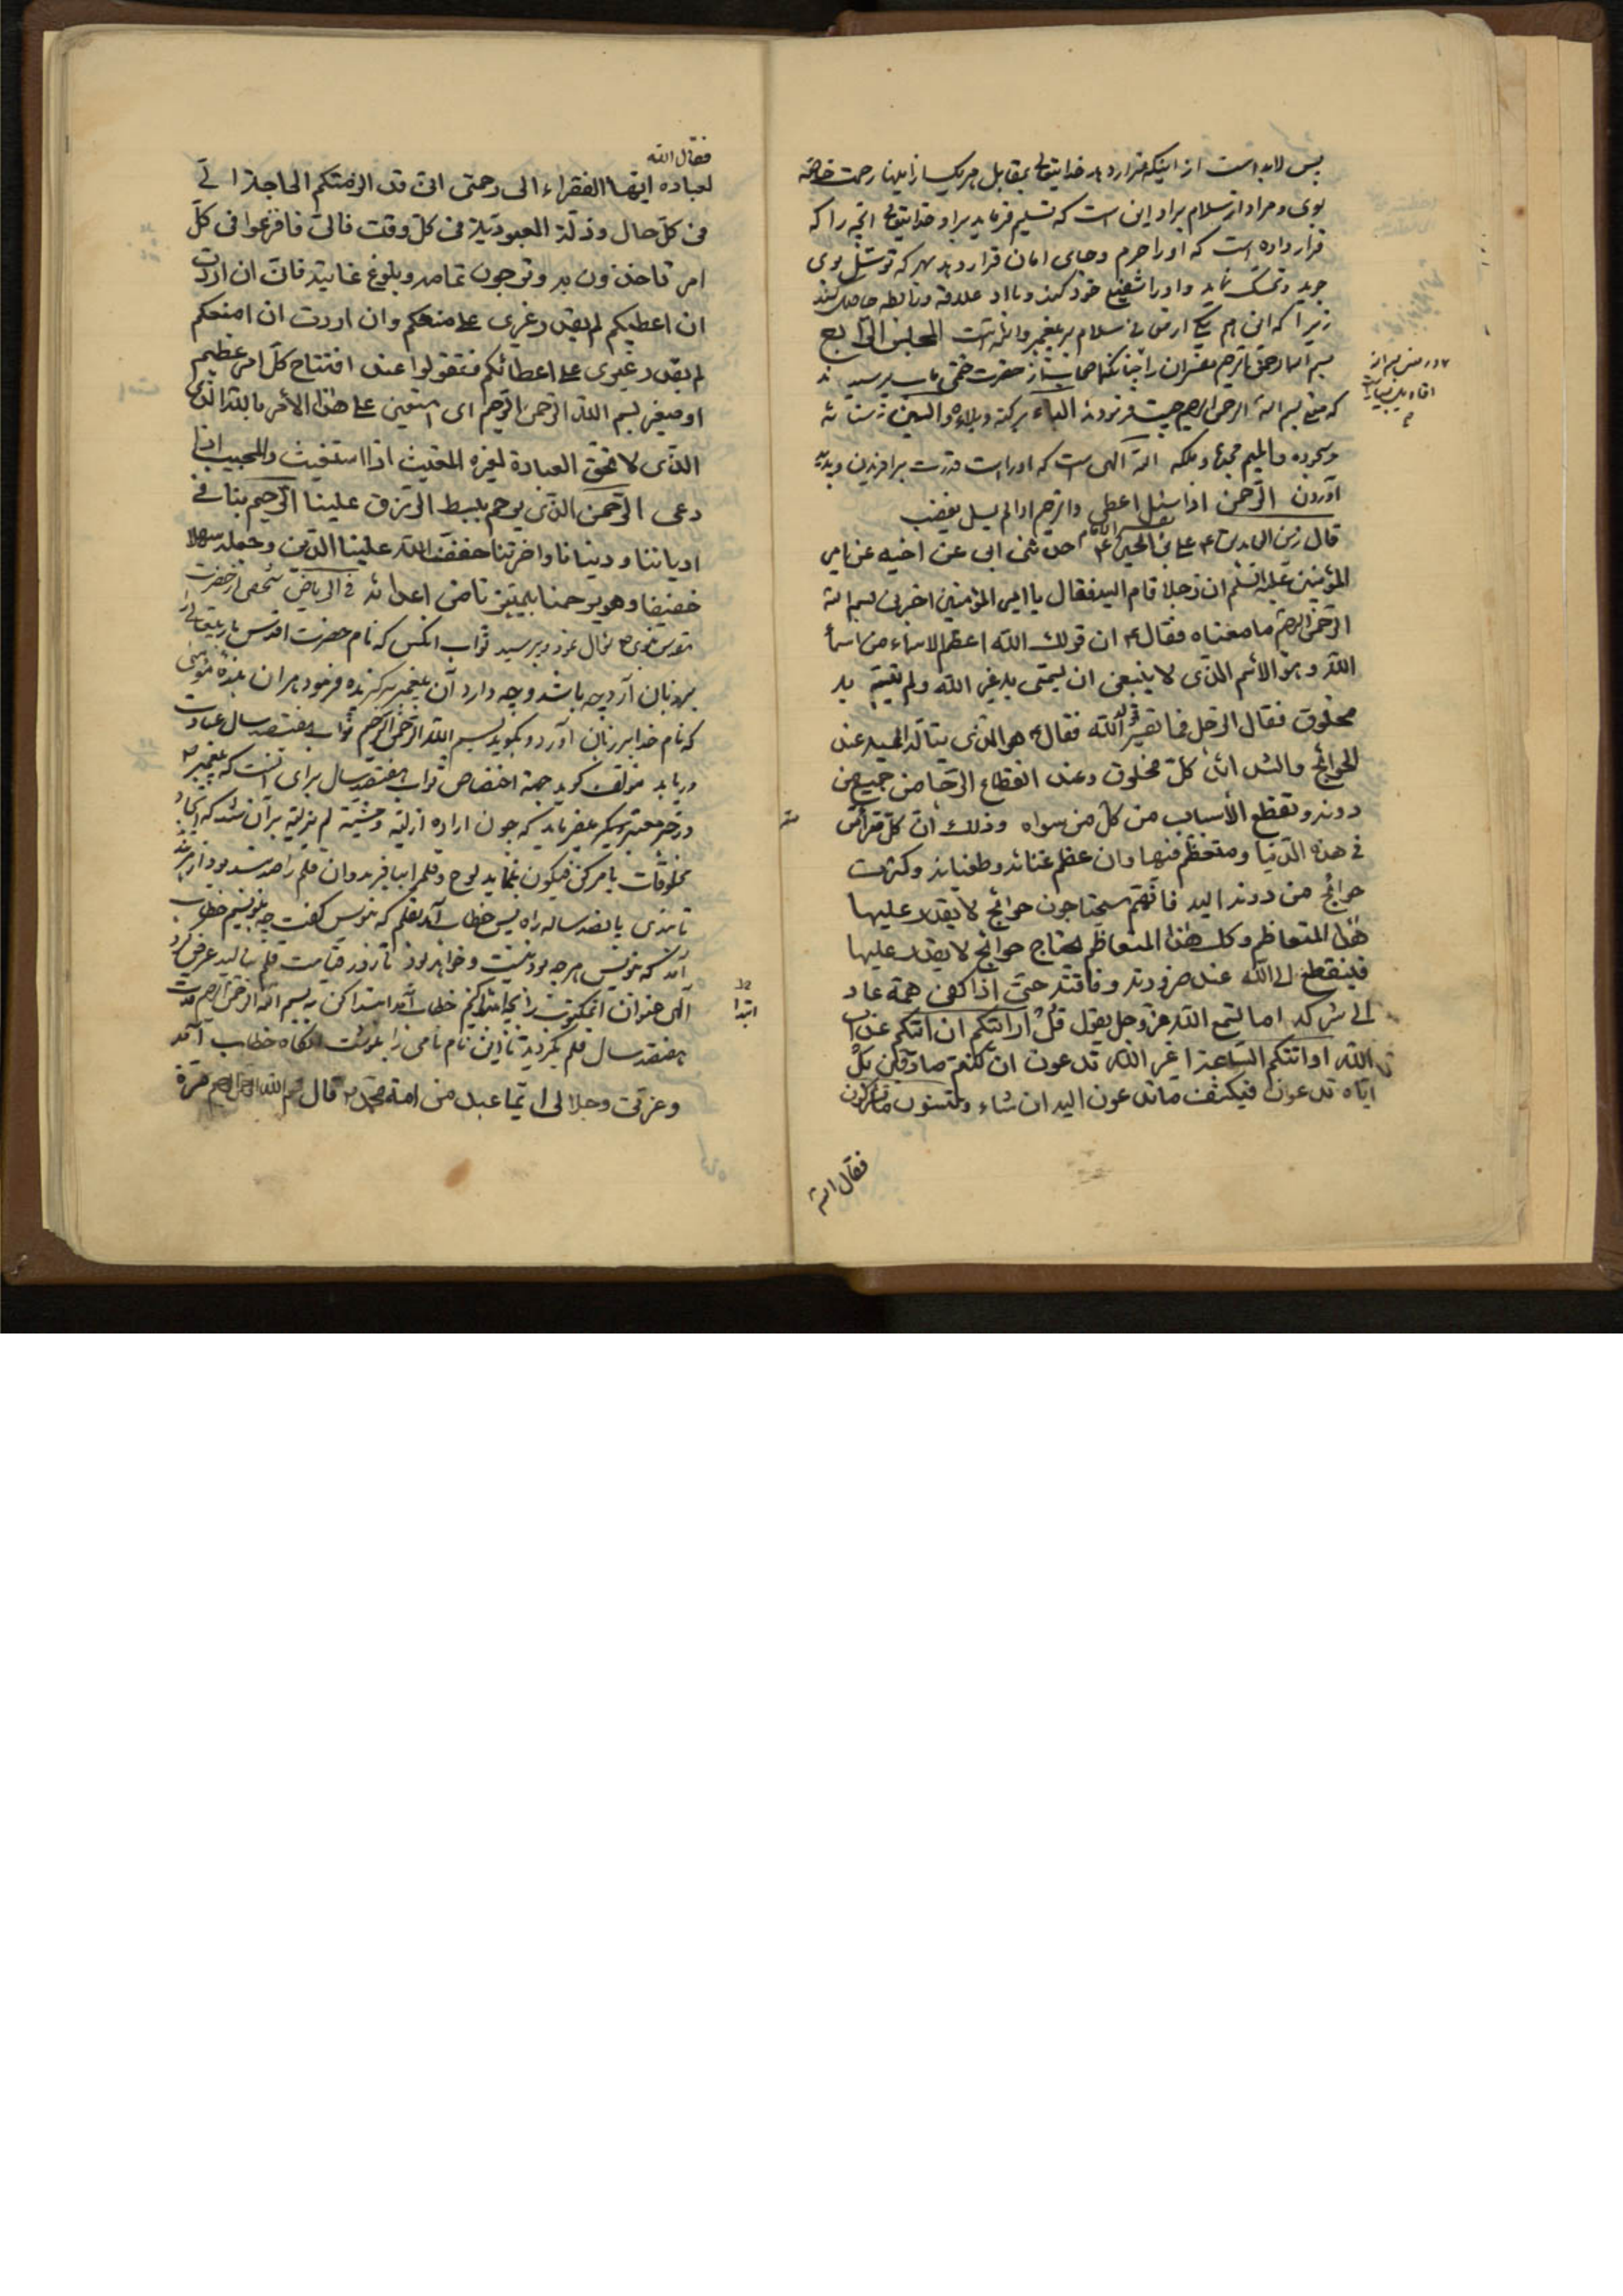 پس لابد است از اینکه قرار دهد خدایتعالی بمقابل هر یک از اینها رحمت خاصّه
بوی و مراد از سلام براو این است که تسلیم فرماید براو خدایتعالی انچه را که
قرار داده است که او را حرم و حامی امان قرار دهد بهر که توسّل بوی
جوید و تمسّک نماید و او را شفیع خود کند و با او علاقه و رابطه حاصل کند
زیرا که این هم یکی از سلام بر پیغمبر و ائمّه است المجلس الرّابع
بسم الله الرحمن الرّحیم مفسّران را از حضرت ختمی مآب پرسیدند
که معنی بسم الله الرحمن الرحیم چیست فرمودند الباء برکته و بلاءه والسین
وسجوده والمیم مجده وملکه الله الهی است که او را است قدرت برآفریدن و پدید
آوردن الرّحمن اذا سئل اعطی والرّحیم اذا لم یسئل یغضب
قال زین العابدین ع علی بن الحسین ع حدّثنی ابی عن اخیه عن امیر
المؤمنین علیه السّلم ان رجلا قام الیه فقال یا امیر المؤمنین اخبرنی بسم الله
الرّحمن الرّحیم ما معناه فقال ع ان قولک الله اعظم الاسماء من اسماء
الله و هو الأسم الذّی لا ینبغی ان یسمّی به غیر الله ولم یتسمّ به
مخلوق فقال الرّجل فما تفسیر قوله الله فقال ع هو الذّی یتألّه الیه عند
الحوائج والشدائد کلّ مخلوق وعند انقطاع الرّجا من جمیع من
دونه وتقطع الأسباب من کلّ من سواه وذلک انّ کلّ مترأس
فی هذه الدّنیا ومتعظّم فیها وان عظم غنائه وطغیانه وکثرت
حوائج من دونه الیه فانّهم سیحتاجون حوائج لا یقدر علیها
هذا المتعاظم وکذلک هذا المتعاظم یحتاج حوائج لا یقدر علیها
فینقطع الی الله عند ضرورته وفاقته حتّی اذا کفی همّه عاد
الی شرکه اما تسمع الله عزّ وجل یقول قل أرأیتکم ان اتیکم عذاب
الله او اتتکم السّاعة اغیر الله تدعون ان کنتم صادقین بل
ایّاه تدعون فیکشف ما تدعون الیه ان شاء وتنسون ما تشرکون
فقال الله
فقال الله
لعباده ایّها الفقراء الی رحمتی انّی قد الزمتکم الحاجة الیّ
فی کلّ حال وذلّة العبودیّة فی کلّ وقت فالیّ فافزعوا فی کلّ
امر تاخذون به وترجون تمامه وبلوغ غایته فانّی ان اردت
ان اعطیکم لم یقدر غیری علی منعکم وان اردت ان امنعکم
لم یقدر غیری علی اعطائکم فقولوا عند افتتاح کلّ امر عظیم
او صغیر بسم الله الرّحمن الرّحیم ای استعین علی هذا الأمر بالله الذّی
الذّی لا تحقّ العبادة لغیره المغیث اذا استغیث والمجیب اذا
دعی الرّحمن الذّی یرحم ببسط الرّزق علینا الرّحیم بنا فی
ادیاننا ودنیانا واخرتنا خفّف الله علینا الدّین وجعله سهلا
خفیفا وهو یرحمنا بتمییزنا من اعدائه فی الرّیاض شخصی از حضرت
نبوی ص سؤال نمود و پرسید ثواب انکس که نام حضرت اقدس باریتعالی را
بر زبان آرد چه باشد و چه دارد آن پیغمبر برگزیده فرمود هر ان بنده مؤمنی
که نام خدا بر زبان آورد و بگوید بسم الله الرّحمن الرّحیم ثواب هفتصد سال عبادت
دریابد مؤلّف گوید جهة اختصاص ثواب هفتصد سال برای انست که پیغمبر ص
در خبر معتبر دیگر میفرماید که چون اراده ازلیّه و مشیّة لم یزلیّه بر آن شد که ایجاد
مخلوقات بامر کن فیکون نماید لوح و قلم را بیافرید و ان قلم را صد بند بود از هر بند
تا بندی پانصد ساله راه پس خطاب آمد بقلم که بنویس گفت چه بنویسم خطاب
آمد که بنویس هر چه بود و نیست و خواهد بود تا روز قیامت قلم بنالید عرض کرد
آلهی عنوان را بچه ابتدا کنم خطاب آمد ابتدا کن به بسم الله الرّحمن الرّحیم مدّت
هفتصد سال قلم بگردید تا این نام نامی را بنوشت انگاه خطاب آمد
وعزّتی وجلالی ایّما عبد من امة محمّد ص قال بسم الله الرحمن الرحیم مرّة
ابتدا